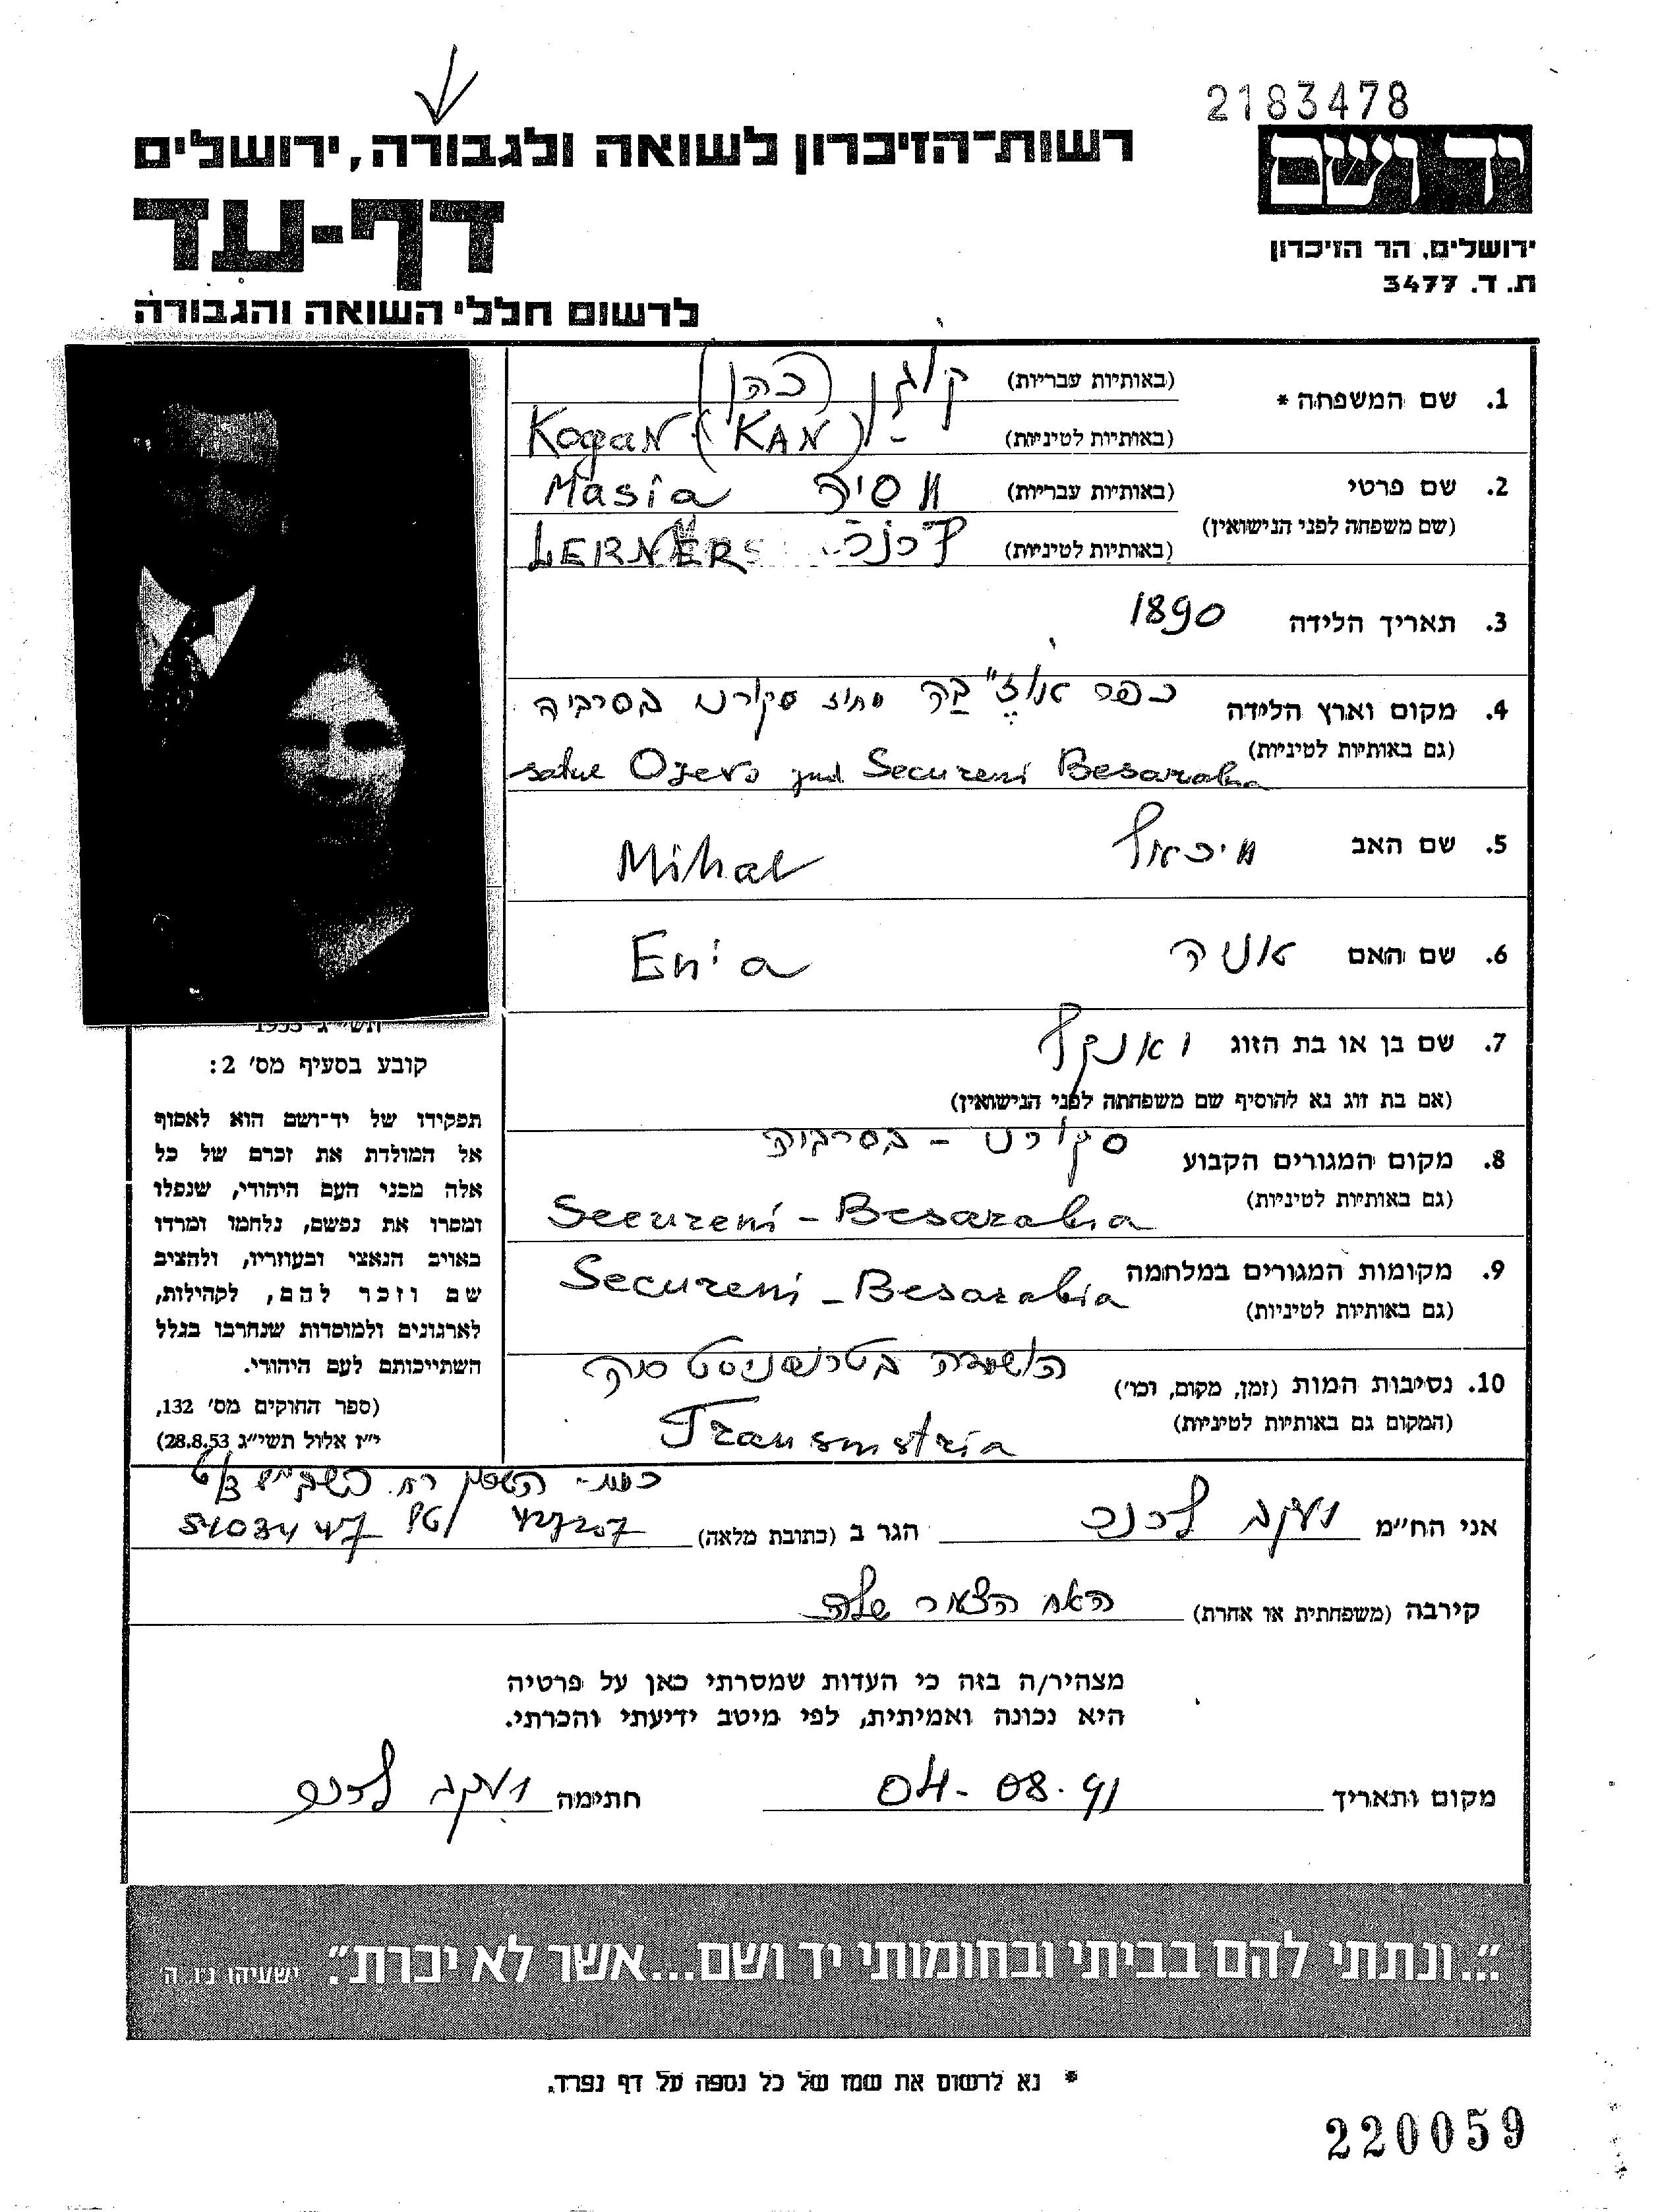 2183478
רשות־הזיכרון לשואה ולגבורה, ירושלים
יד ושם
דף-עד
ירושלים, הר הזיכרון
ת. ד. 3477
לרשום חללי השואה והגבורה
1. שם המשפחה * (באותיות עבריות) קוגן (כהן)
(באותיות לטיניות) Kogan (KAN)
2. שם פרטי (באותיות עבריות) מסיה Masia
(שם משפחה לפני הנישואין) (באותיות לטיניות) לרנר LERNER
3. תאריך הלידה 1890
4. מקום וארץ הלידה כפר מחוז סקורני בסרביה
(גם באותיות לטיניות) Ojevo jud Secureni Besarabia
5. שם האב מיכאל Mihal
6. שם האם אניה Enia
7. שם בן או בת הזוג יאנקל
(אם בת זוג נא להוסיף שם משפחתה לפני הנישואין)
8. מקום המגורים הקבוע סקורני - בסרביה
(גם באותיות לטיניות) Secureni - Besarabia
9. מקומות המגורים במלחמה Secureni - Besarabia
(גם באותיות לטיניות)
10. נסיבות המות (זמן, מקום, וכו') הושמדה
(המקום גם באותיות לטיניות) Transnistria
תשי"ג 1953
קובע בסעיף מס' 2:
תפקידו של יד־ושם הוא לאסוף
אל המולדת את זכרם של כל
אלה מבני העם היהודי, שנפלו
ומסרו את נפשם, נלחמו ומרדו
באויב הנאצי ובעוזריו, ולהציב
שם וזכר להם, לקהילות,
לארגונים ולמוסדות שנחרבו בגלל
השתייכותם לעם היהודי.
(ספר החוקים מס' 132,
י"ז אלול תשי"ג 28.8.53)
אני הח"מ יעקב לרנר הגר ב (כתובת מלאה) רח
427207 טל 5103447
קירבה (משפחתית או אחרת) האח הצעיר שלה
מצהיר/ה בזה כי העדות שמסרתי כאן על פרטיה
היא נכונה ואמיתית, לפי מיטב ידיעתי והכרתי.
מקום ותאריך 04-08-91 חתימה יעקב לרנר
"...ונתתי להם בביתי ובחומותי יד ושם...אשר לא יכרת". ישעיהו נ"ו, ה'
* נא לרשום את שמו של כל נספה על דף נפרד.
220059